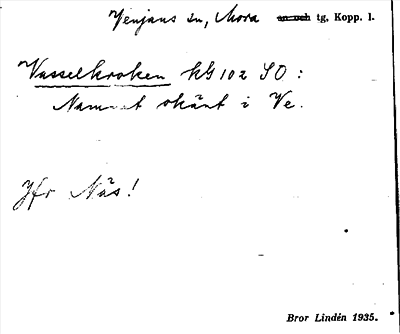 Venjans sn, Mora ~~sn och~~ tg, Kopp. l.
Vasselkroken kG 102 SO:
Namnet okänt i Ve.
Jfr Näs!
Bror Lindén 1935.